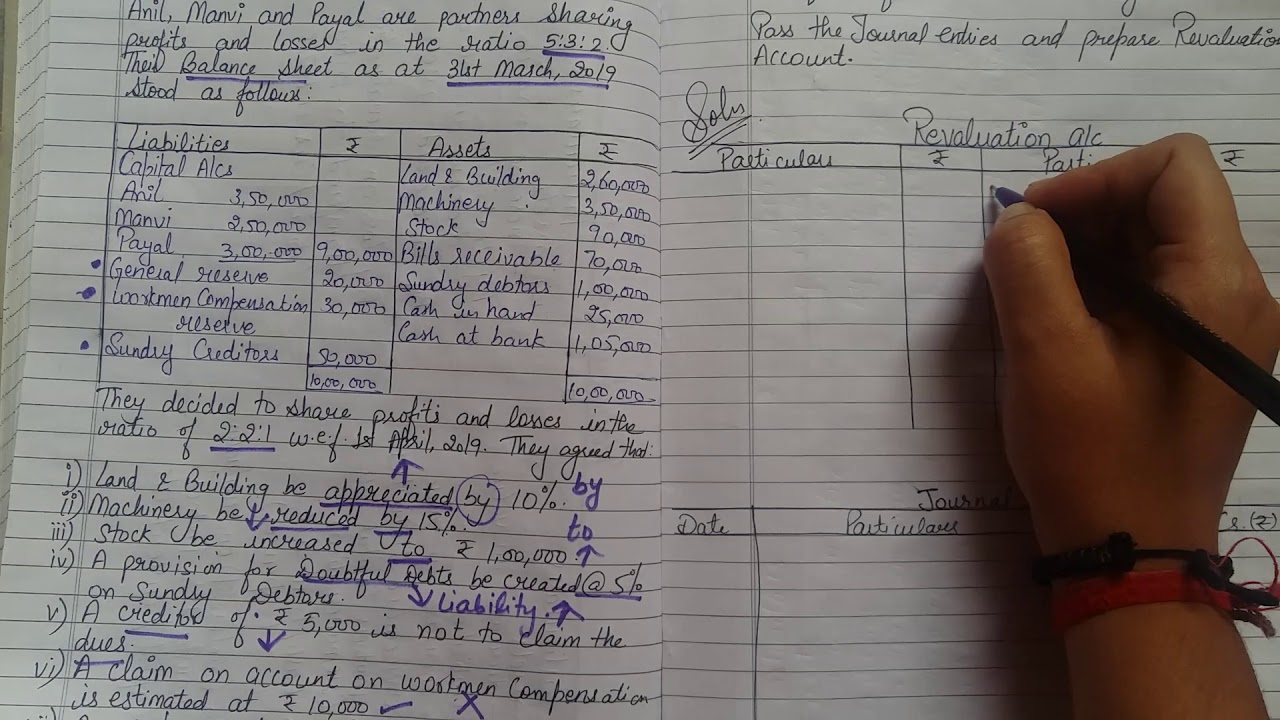 Anil, Manvi and Payal are partners sharing
profits and losses in the ratio 5:3:2.
Their Balance sheet as at 31st March, 2019
stood as follows:
Liabilities ₹ Assets ₹
Capital A/cs Land & Building 2,60,000
Anil 3,50,000 Machinery 3,50,000
Manvi 2,50,000 Stock 90,000
Payal 3,00,000 9,00,000 Bills receivable 70,000
General reserve 20,000 Sundry debtors 1,00,000
Workmen Compensation 30,000 Cash in hand 25,000
reserve Cash at bank 1,05,000
Sundry Creditors 50,000
10,00,000 10,00,000
They decided to share profits and losses in the
ratio of 2:2:1 w.e.f. 1st April, 2019. They agreed that:
i) Land & Building be appreciated by 10%. by
ii) Machinery be reduced by 15%. to
iii) Stock be increased to ₹ 1,00,000.
iv) A provision for Doubtful Debts be created @ 5%
on Sundry Debtors. Liability.
v) A creditor of ₹ 5,000 is not to claim the
dues.
vi) A claim on account on workmen Compensation
is estimated at ₹ 10,000
Pass the Journal entries and prepare Revaluation
Account.
Soln
Revaluation a/c
Particulars ₹ Parti ₹
Journal
Date Particulars (₹)